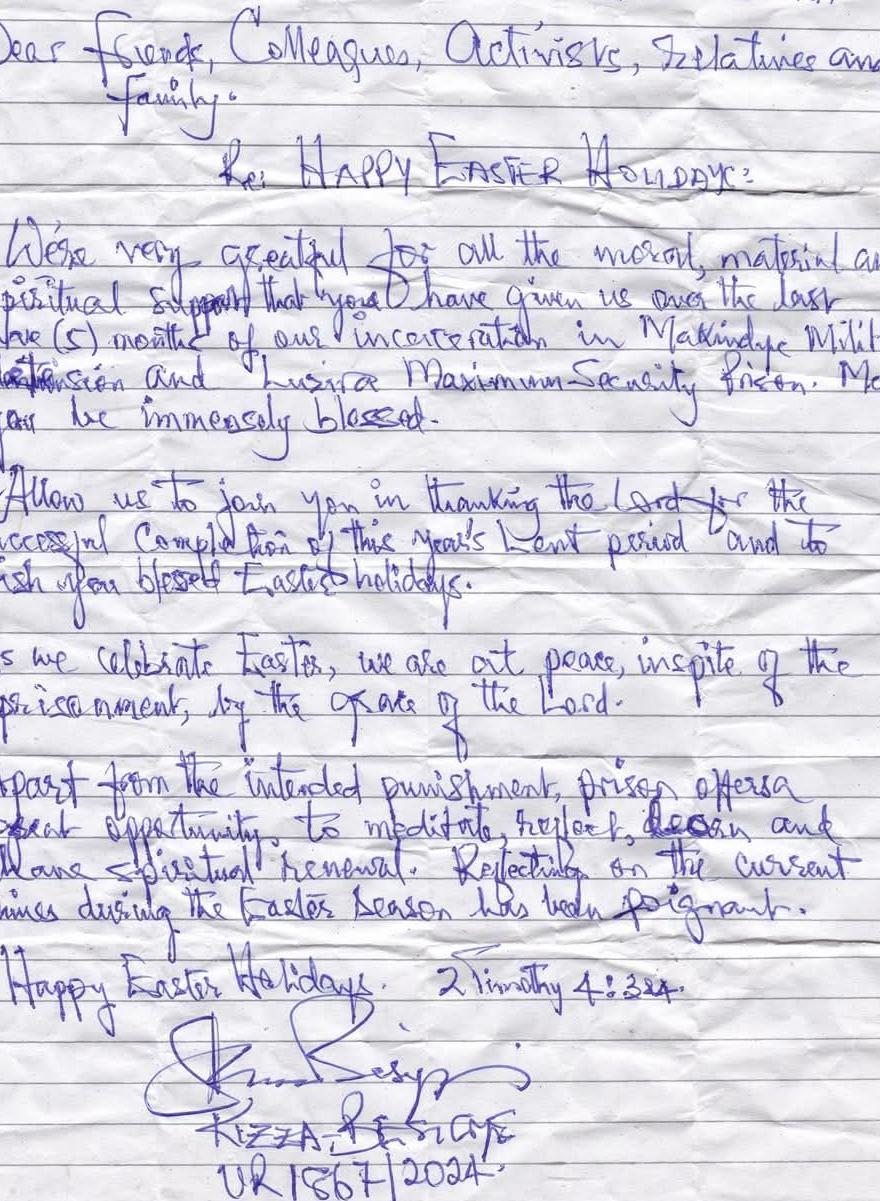 Dear friends, Colleagues, Activists, Relatives and
family.
Re: HAPPY EASTER HOLIDAYS:
We're very greatful for all the moral, material an
piritual support that you have given us over the last
ive (5) months of our incarceration in Makindye Milit
and Luzira Maximum Security Prison. Ma
you be immensely blessed.
Allow us to join you in thanking the Lord for the
uccessful Completion of this year's Lent period and to
ish you blessed Easter holidays.
s we celebrate Easter, we are at peace, inspite of the
prisonment, by the grace of the Lord.
part from the intended punishment, prison offers a
great opportunity to meditate, reflect, learn and
have spiritual renewal. Reflecting on the current
times during the Easter Season has been poignant.
Happy Easter Holidays. 2 Timothy 4:3&4.
KIZZA-BESIGYE
UR1867/2024.